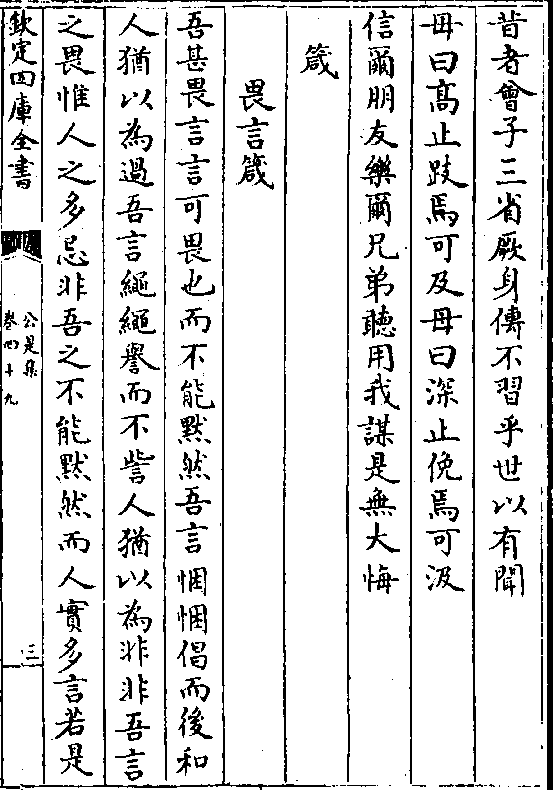 昔者曾子三省厥身傳不習乎世以有聞
毋曰高止跂焉可及毋曰深止俛焉可汲
信爾朋友樂爾兄弟聽用我謀是無大悔
箴
畏言箴
吾甚畏言言可畏也而不能默然吾言悃悃倡而後和
人猶以為過吾言繩繩譽而不訾人猶以為非非吾言
之畏惟人之多忌非吾之不能默然而人實多言若是
欽定四庫全書
公是集
卷四十九
三